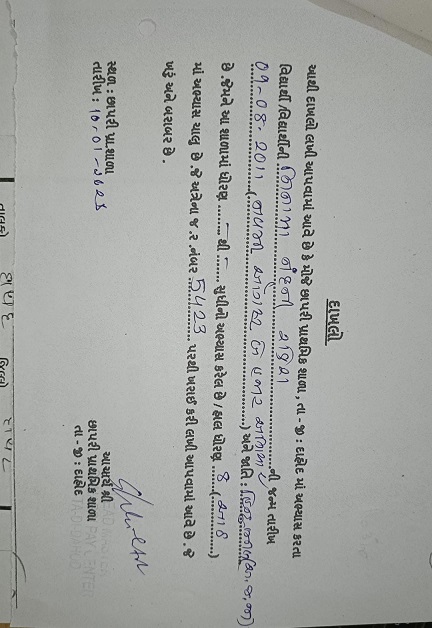 દાખલો
આથી દાખલો લખી આપવામાં આવે છે કે મોજે છાપરી પ્રાથમિક શાળા, તા - જી : દાહોદ માં અભ્યાસ કરતા
વિદ્યાર્થી /વિદ્યાર્થીની નિનામા નંદની ની જન્મ તારીખ
09-08-2011 ( નવમી ઓગષ્ટ બે હજાર અગિયાર ) અને જાતિ : હિન્દુ ભીલ (અ.જ.જા)
છે. જેમને આ શાળામાં ધોરણ - થી - સુધીનો અભ્યાસ કરેલ છે / હાલ ધોરણ 8 ( આઠ )
માં અભ્યાસ ચાલુ છે. જે અત્રેના જ.ર.નંબર 5423 પરથી ખરાઈ કરી લખી આપવામાં આવે છે. જે
ખરું અને બરાબર છે.
સ્થળ : છાપરી પ્રા.શાળા
તારીખ : 10-01-2025
આચાર્ય શ્રી
છાપરી પ્રાથમિક શાળા
તા - જી : દાહોદ